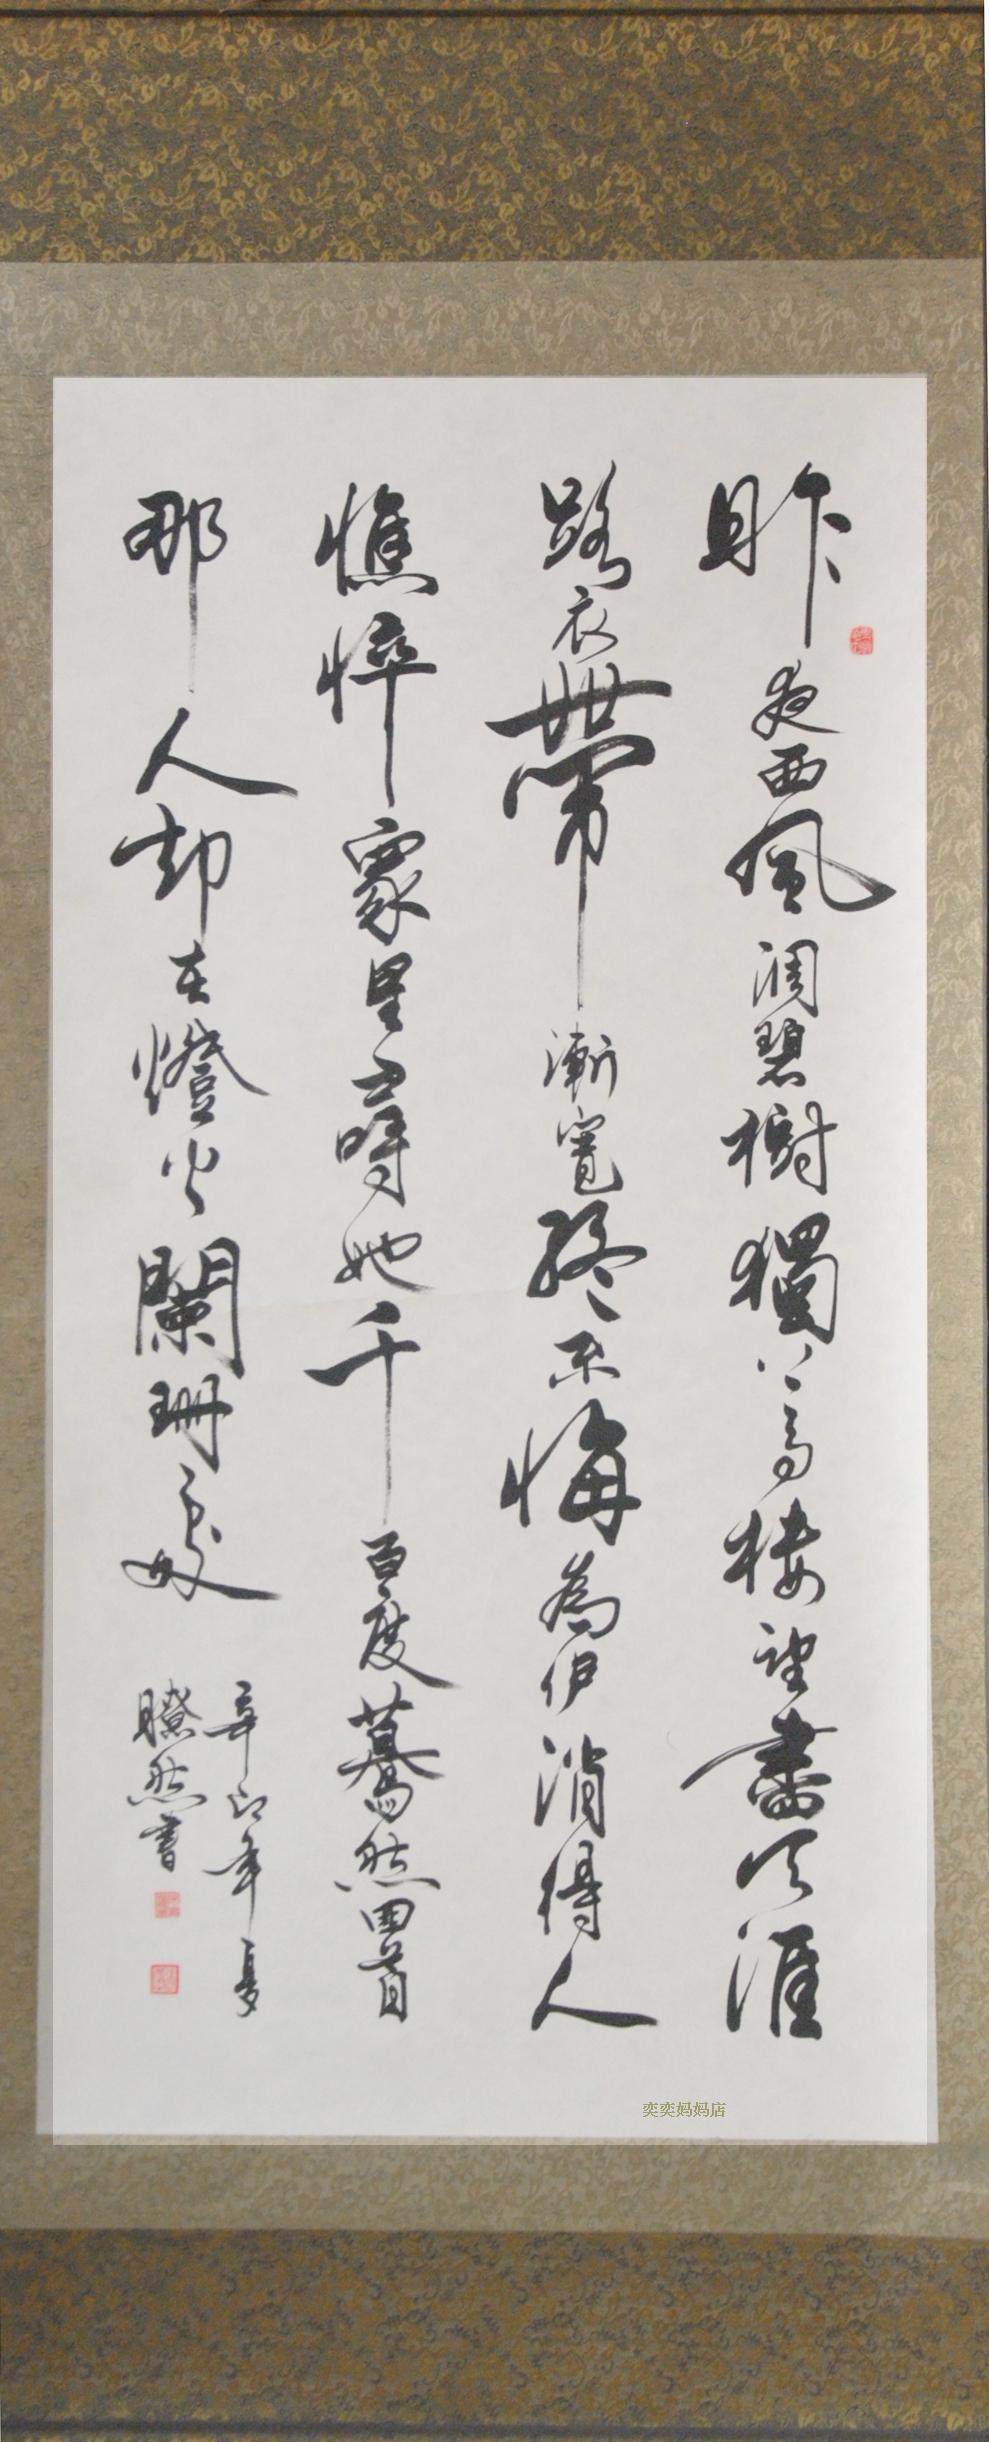 昨夜西風凋碧樹獨上高樓望盡天涯
路衣帶漸寬終不悔為伊消得人
憔悴眾里尋她千百度驀然回首
那人却在燈火闌珊處
辛卯年夏
瞭然書
奕奕妈妈店